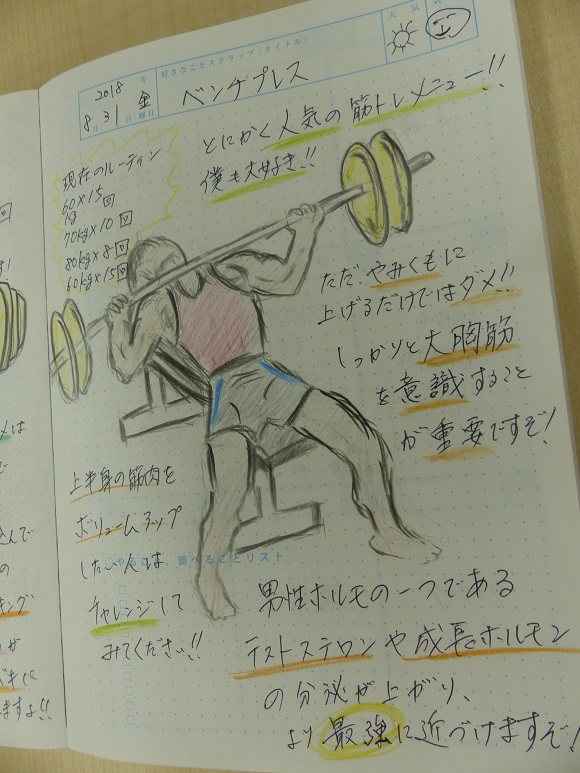 好きなことスクラップ(タイトル)
天気
気
2018年
8月31日金曜日
ベンチプレス
とにかく人気の筋トレメニュー!!
僕も大好き!!
現在のルーティン
60kg×15回
70kg×10回
80kg×8回
60kg×15回
ただやみくもに
上げるだけではダメ!!
しっかりと大胸筋
を意識すること
が重要ですぞ!
上半身の筋肉を
ボリュームアップ
したい人は
チャレンジして
みてください!!
やること、調べることリスト
男性ホルモの一つである
テストステロンや成長ホルモン
の分泌が上がり、
より最強に近づけますぞ!
回
メは
で
込んで
の
キング
が
ますよ!!